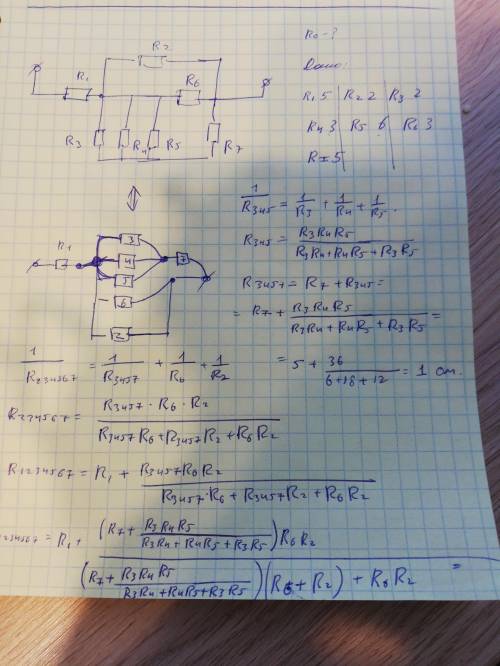 R0-?
Дано:
R1 5 | R2 2 | R3 2
R4 3 | R5 6 | R6 3
R7=5
R2
R1
R6
R3
R4
R5
R7
R1
3
4
5
7
6
2
1/R345 = 1/R3 + 1/R4 + 1/R5.
R345 = R3R4R5/(R3R4+R4R5+R3R5)
R3457 = R7 + R345 =
= R7 + R3R4R5/(R3R4+R4R5+R3R5) =
= 5 + 36/(6+18+12) = 1 Ом.
1/R234567 = 1/R3457 + 1/R6 + 1/R2
R234567 = R3457·R6·R2/(R3457R6+R3457R2+R6R2)
R1234567 = R1 + R3457R6R2/(R3457·R6+R3457R2+R6R2)
234567 = R1 + (R7+R3R4R5/(R3R4+R4R5+R3R5))R6R2/((R7+R3R4R5/(R3R4+R4R5+R3R5))(R6+R2)+R6R2) =